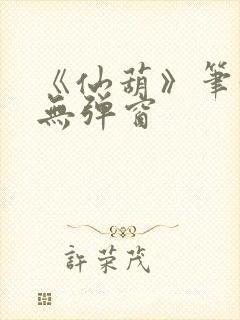 《仙葫》筆
無彈窗
許荣茂